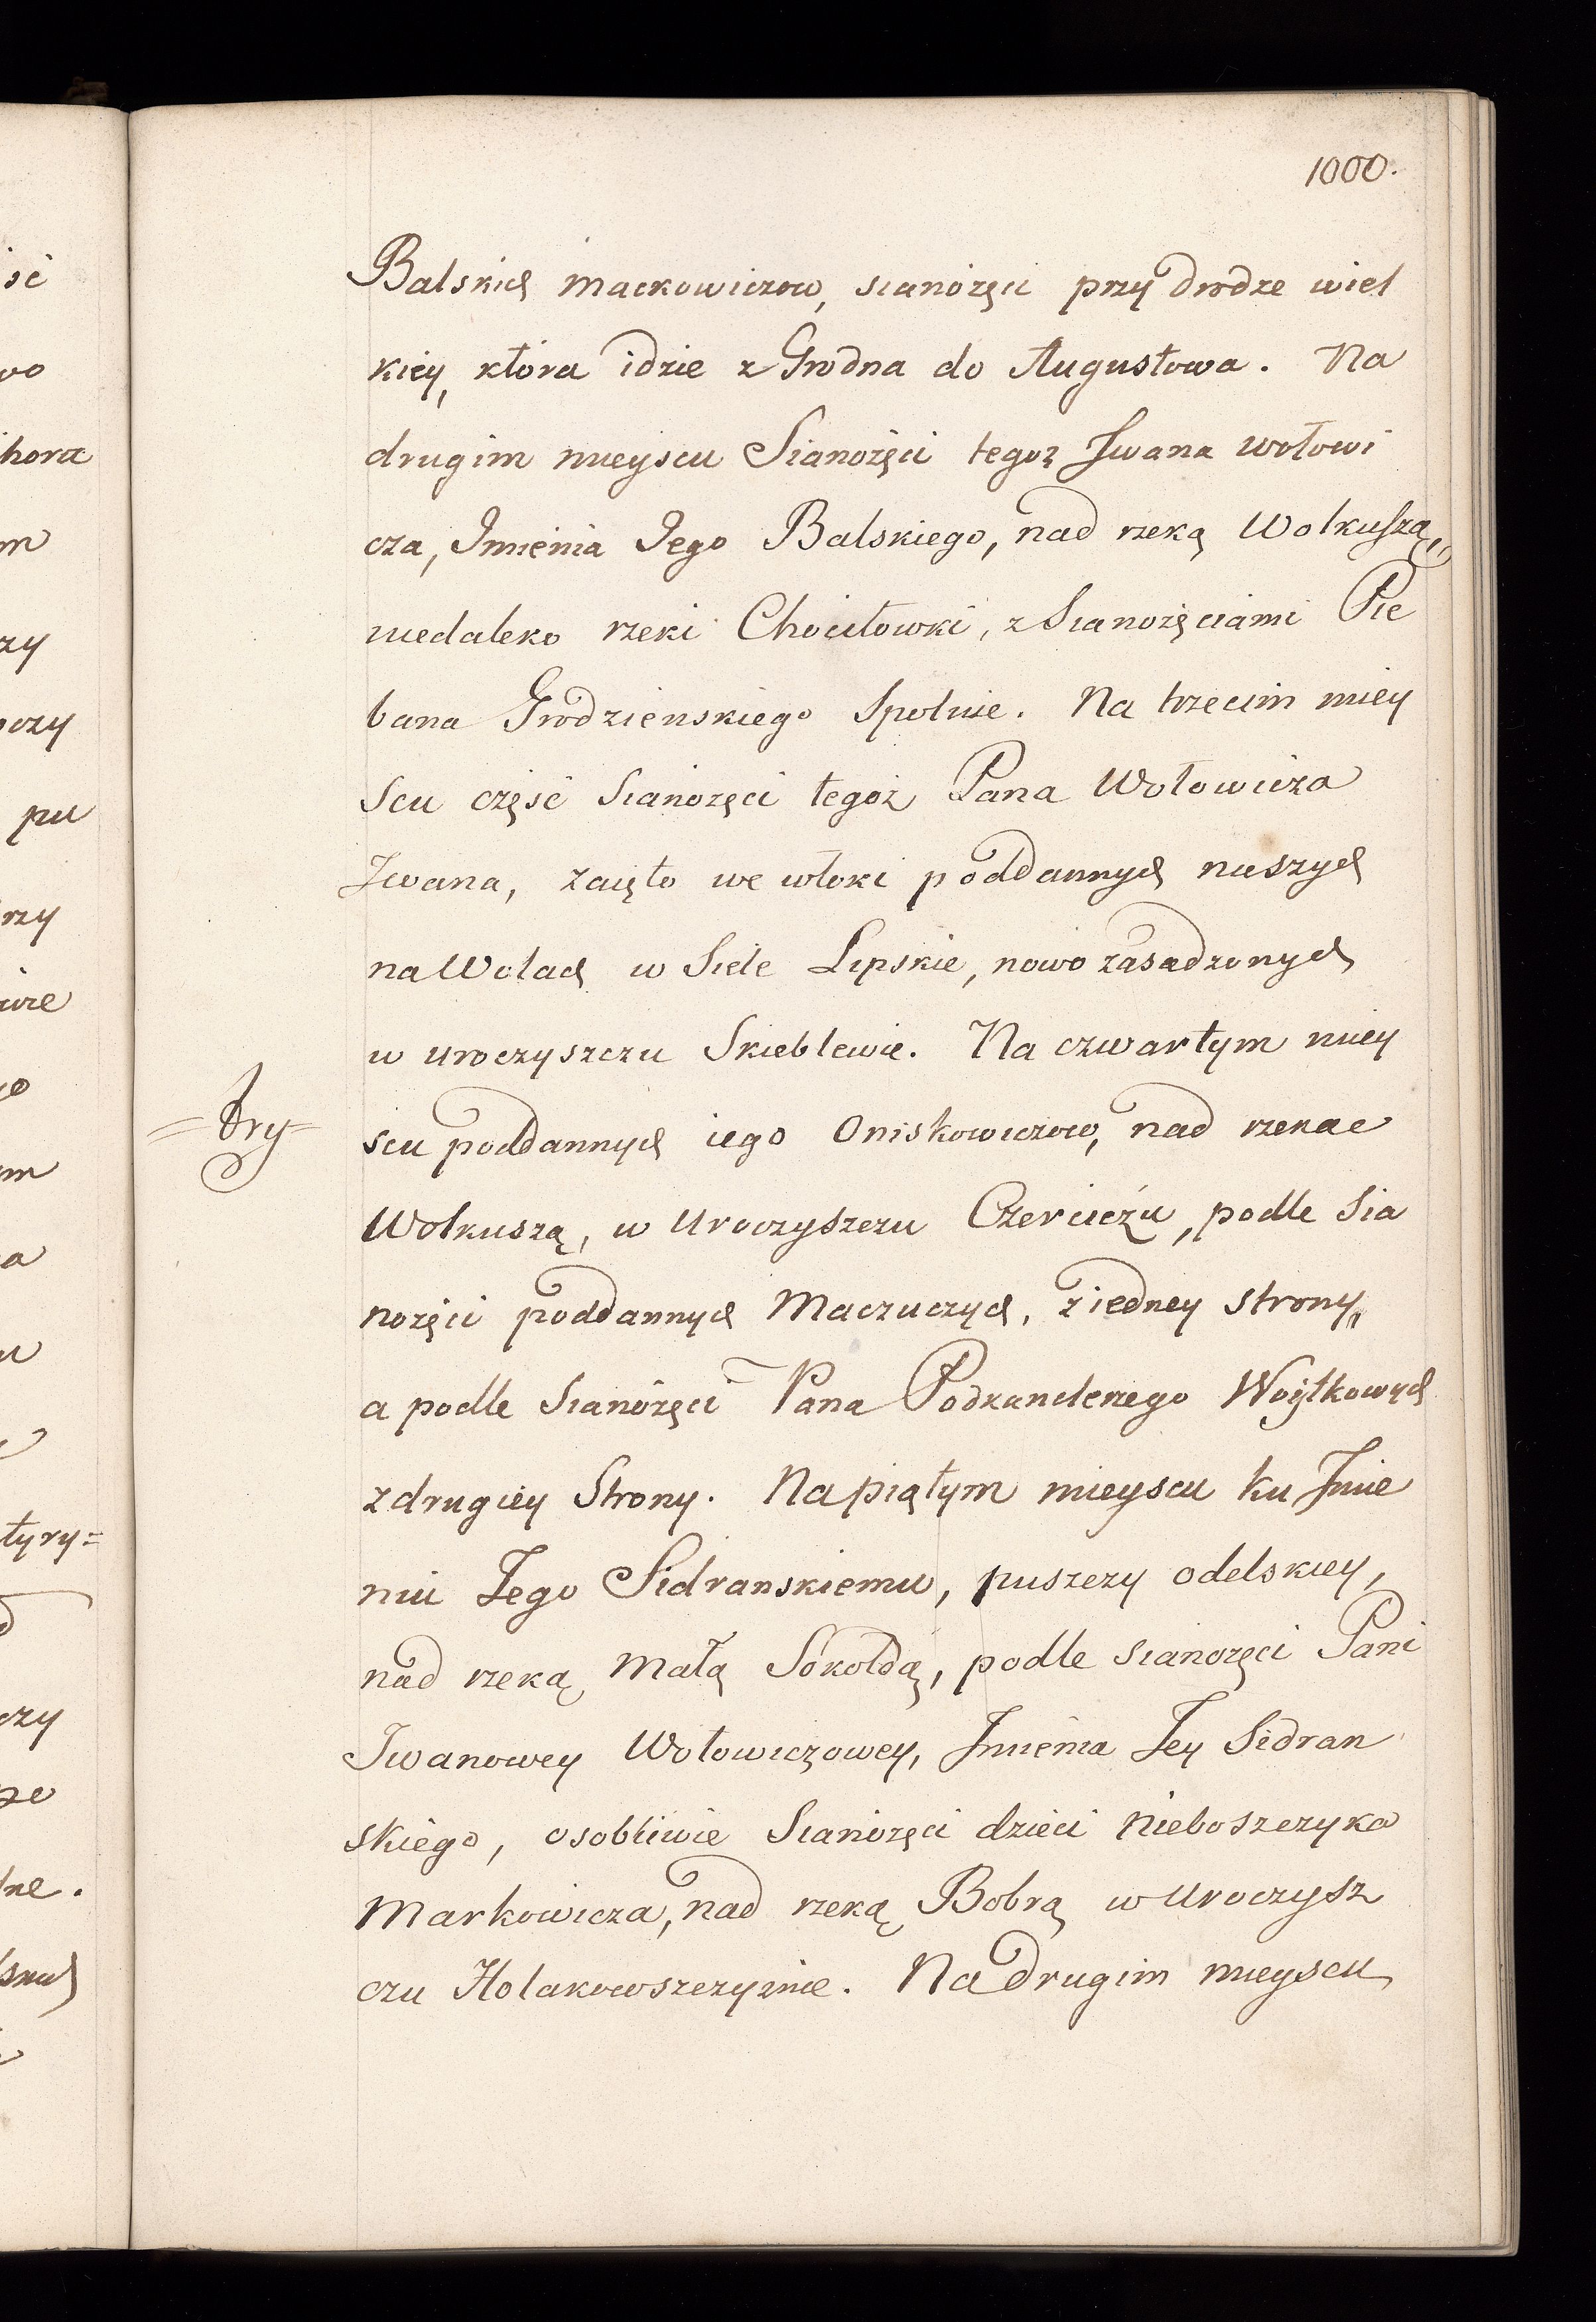 1000.
Balskich Mackowiczow, sianożęci przy drodze wiel
kiey, która idzie z Grodna do Augustowa. Na
drugim mieyscu Sianożęci tegoż Jwana Wołowi
cza, Jmienia Jego Balskiego, nad rzeką Wolkuszą,
niedaleko rzeki Chociłowki, z Sianożęciami Ple
bana Grodzienskiego Spolnie. Na trzecim miey
scu częsć Sianożęci tegoż Pana Wołowicza
Jwana, zaięto we włoki poddannych naszych
na Wolach w Siele Lipskie, nowo zasadzonych
w uroczyszczu Skieblewie. Na czwartym miey
=try=
scu poddannych iego Oniskowiczow, nad rzekae
Wolkuszą, w Uroczyszczu Czercieżu, podle Sia
nożęci poddannych Maczuczych, z iedney strony,
a podle Sianożęci Pana Podkanclerzego Woytkowych
z drugiey Strony. Na piątym mieyscu ku Jmie
niu Jego Sidranskiemu, puszczy odelskiey,
nad rzeką Małą Sokołdą, podle sianożęci Pani
Jwanowey Wołowiczowey, Jmienia Jey Sidran
skiego, osobliwie Sianożęci dzieci Nieboszczyka
Markowicza, nad rzeką Bobrą w Uroczysz
czu Holakowszczyznie. Na drugim mieyscu
sć
wo
hora
m
zy
oczy
pu
rzy
m
a
u
tyry=
czy
ze
lne.